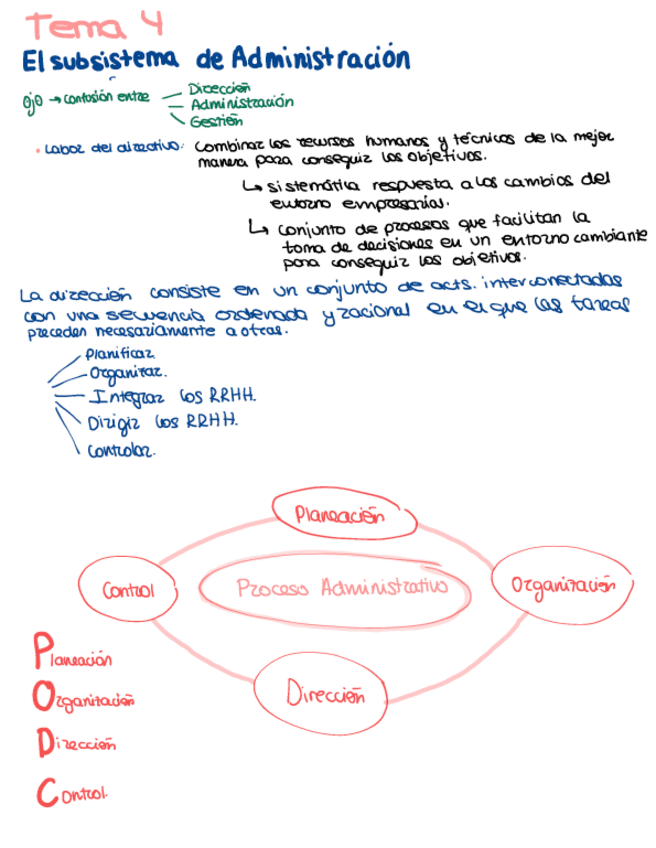 Tema 4
El subsistema de Administración
ojo → confusión entre
Dirección
Administración
Gestión
• Labor del directivo: Combinar los recursos humanos y técnicos de la mejor
manera para conseguir los objetivos.
↳ sistemática respuesta a los cambios del
entorno empresarial.
↳ conjunto de procesos que facilitan la
toma de decisiones en un entorno cambiante
para conseguir los objetivos.
La dirección consiste en un conjunto de acts. interconectadas
con una secuencia ordenada y racional en el que las tareas
preceden necesariamente a otras.
Planificar.
Organizar.
Integrar los RRHH.
Dirigir los RRHH.
Controlar.
Planeación
Control
Proceso Administrativo
Organización
Dirección
Planeación
Organización
Dirección
Control.